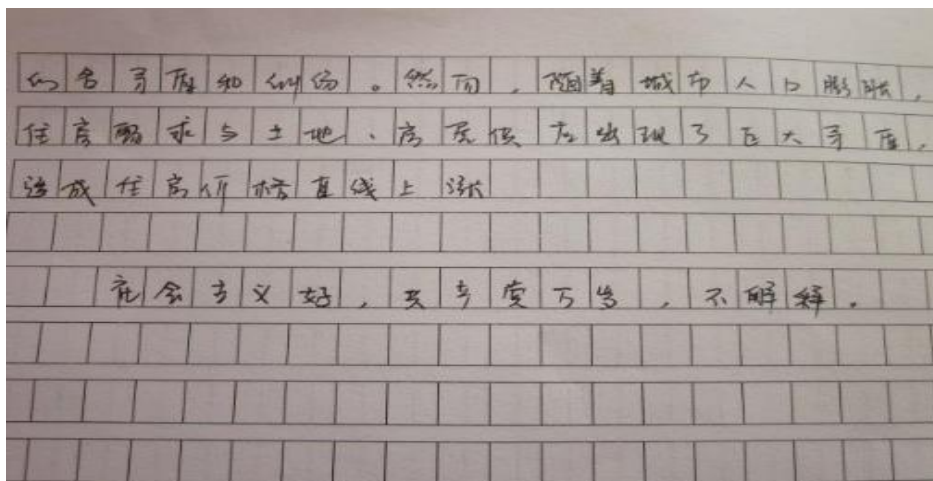 然而,随着城市人口膨胀,
住房需求与土地、房屋供应出现了巨大
造成住房价格直线上涨
社会主义好,共产党万岁,不解释。